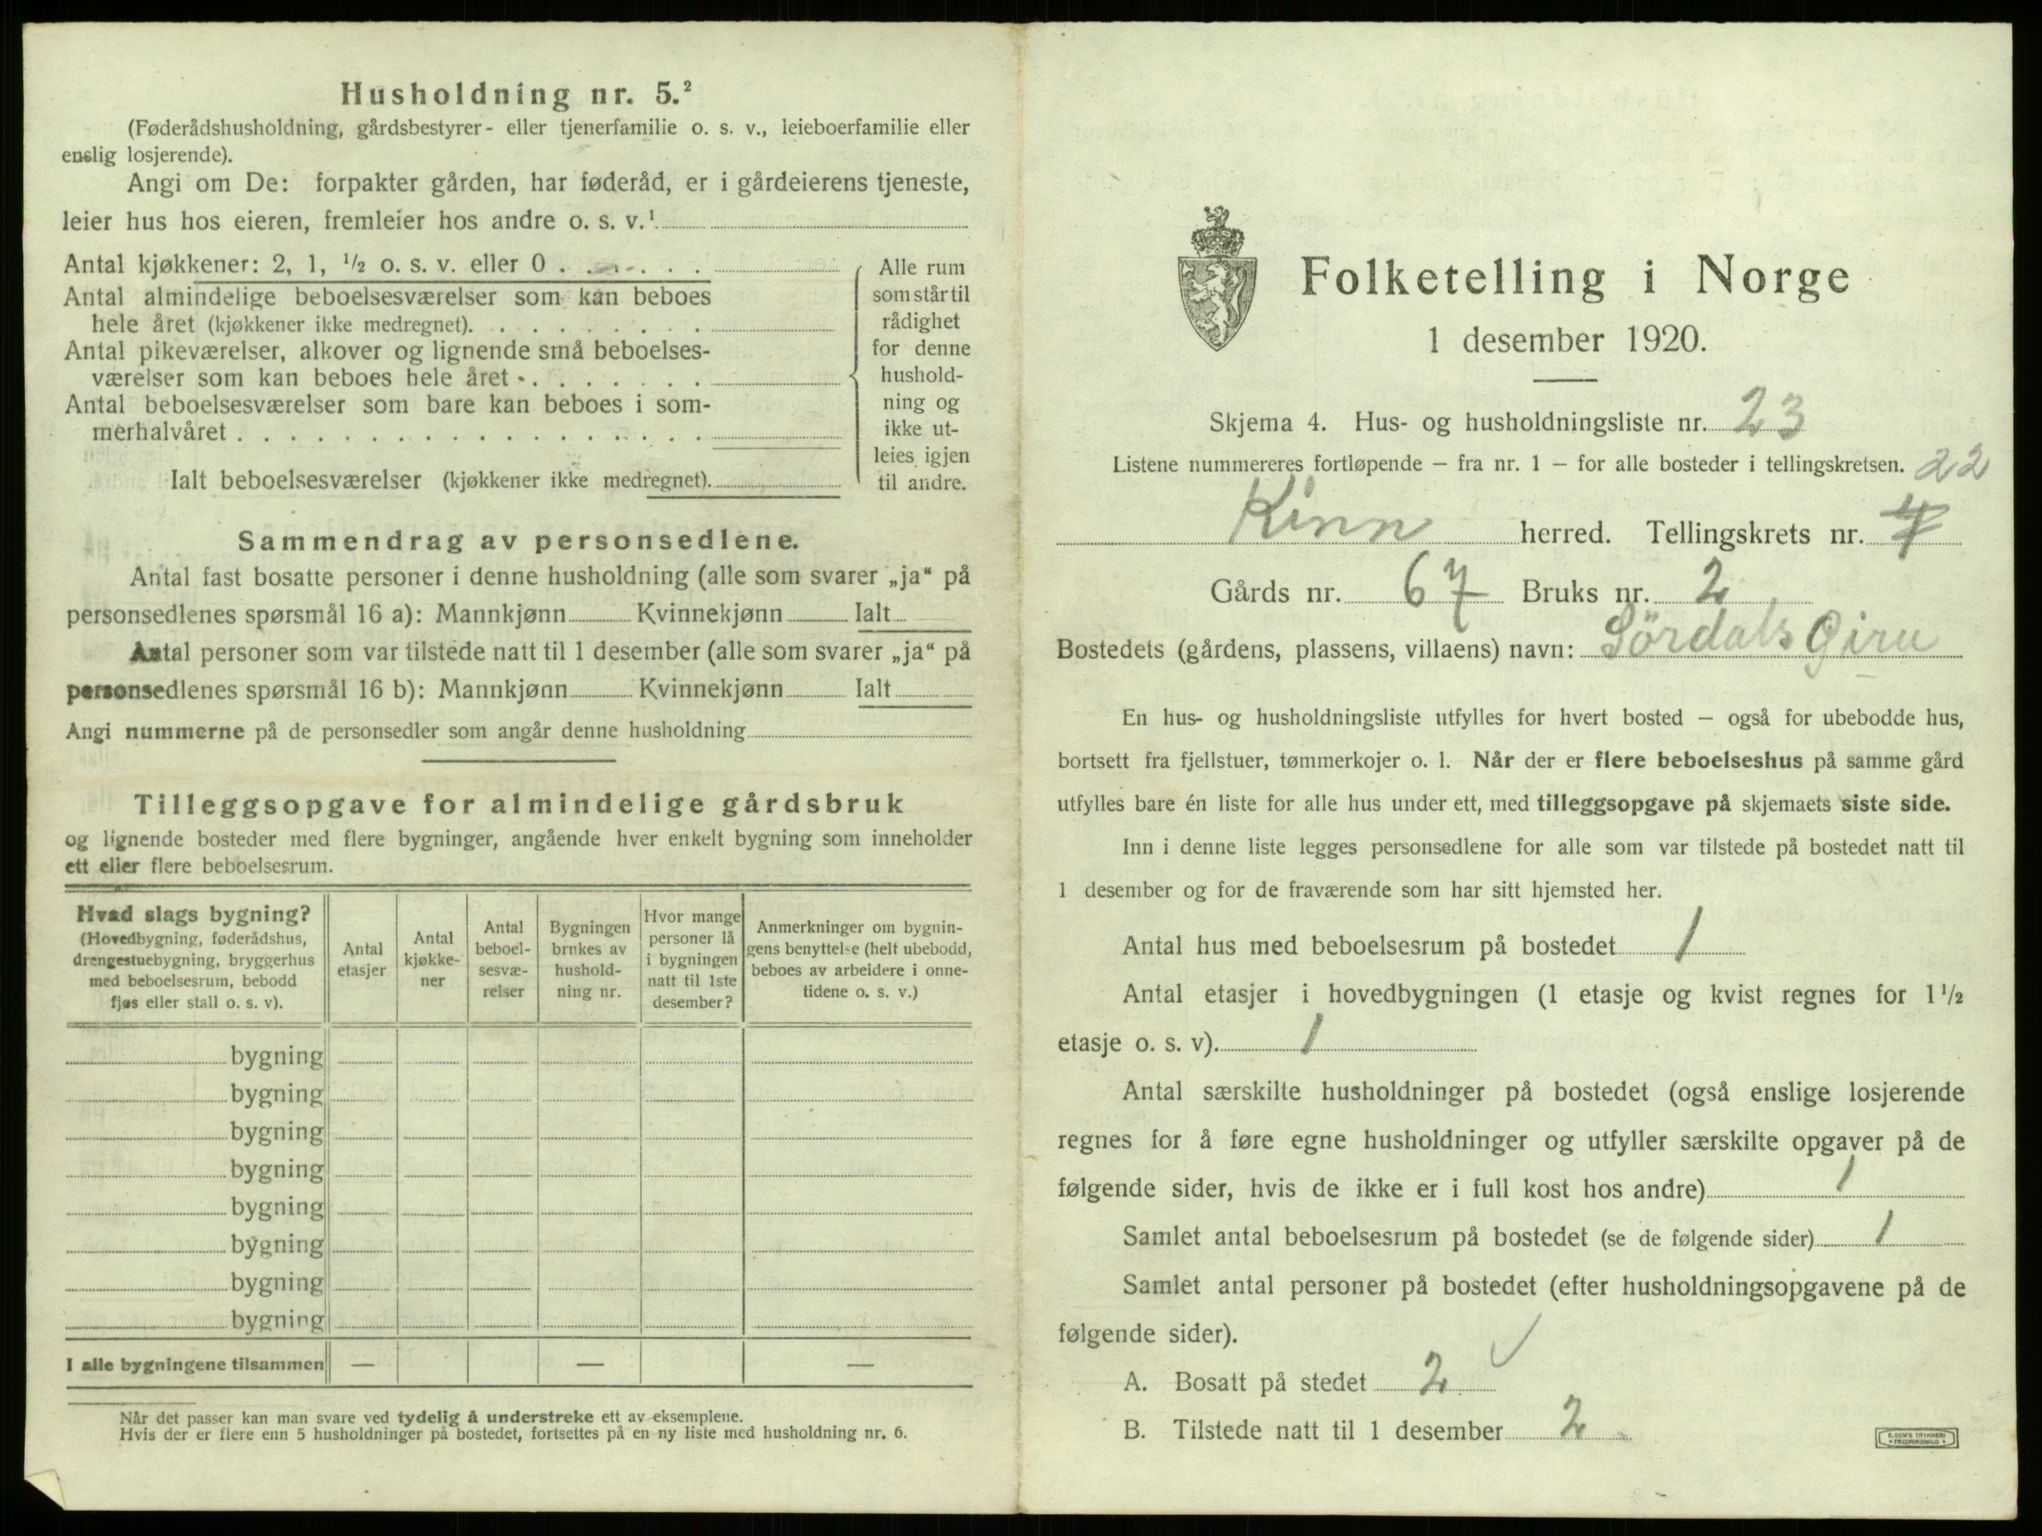 Husholdning nr. 5.²
(Føderådshusholdning, gårdsbestyrer- eller tjenerfamilie o. s. v., leieboerfamilie eller
enslig losjerende).
Angi om De: forpakter gården, har føderåd, er i gårdeierens tjeneste,
leier hus hos eieren, fremleier hos andre o. s. v.¹
Antal kjøkkener: 2, 1, ½ o. s. v. eller 0 . . . . . .
Antal almindelige beboelsesværelser som kan beboes
hele året (kjøkkener ikke medregnet). . . . . . . . .
Antal pikeværelser, alkover og lignende små beboelses-
værelser som kan beboes hele året . . . . . . .
Antal beboelsesværelser som bare kan beboes i som-
merhalvåret . . . . . . . . . . . . . . . . . .
Ialt beboelsesværelser (kjøkkener ikke medregnet).
Alle rum
som står til
rådighet
for denne
hushold-
ning og
ikke ut-
leies igjen
til andre.
Sammendrag av personsedlene.
Antal fast bosatte personer i denne husholdning (alle som svarer „ja“ på
personsedlenes spørsmål 16 a): Mannkjønn Kvinnekjønn Ialt
Antal personer som var tilstede natt til 1 desember (alle som svarer „ja“ på
personsedlenes spørsmål 16 b): Mannkjønn Kvinnekjønn Ialt
Angi nummerne på de personsedler som angår denne husholdning
Tilleggsopgave for almindelige gårdsbruk
og lignende bosteder med flere bygninger, angående hver enkelt bygning som inneholder
ett eller flere beboelsesrum.
Hvad slags bygning?
(Hovedbygning, føderådshus,
drengestuebygning, bryggerhus
med beboelsesrum, bebodd
fjøs eller stall o. s. v).
Antal
etasjer
Antal
kjøkke-
ner
Antal
beboel-
sesvæ-
relser
Bygningen
brukes av
hushold-
ning nr.
Hvor mange
personer lå
i bygningen
natt til 1ste
desember?
Anmerkninger om bygnin-
gens benyttelse (helt ubebodd,
beboes av arbeidere i onne-
tidene o. s. v.)
bygning
bygning
bygning
bygning
bygning
bygning
bygning
bygning
I alle bygningene tilsammen — — —
Når det passer kan man svare ved tydelig å understreke ett av eksemplene.
Hvis der er flere enn 5 husholdninger på bostedet, fortsettes på en ny liste med husholdning nr. 6.
Folketelling i Norge
1 desember 1920.
Skjema 4. Hus- og husholdningsliste nr. 23
Listene nummereres fortløpende — fra nr. 1 — for alle bosteder i tellingskretsen. 22
Kinn herred. Tellingskrets nr. 4
Gårds nr. 67 Bruks nr. 2
Bostedets (gårdens, plassens, villaens) navn: Sördals
En hus- og husholdningsliste utfylles for hvert bosted — også for ubebodde hus,
bortsett fra fjellstuer, tømmerkojer o. l. Når der er flere beboelseshus på samme gård
utfylles bare én liste for alle hus under ett, med tilleggsopgave på skjemaets siste side.
Inn i denne liste legges personsedlene for alle som var tilstede på bostedet natt til
1 desember og for de fraværende som har sitt hjemsted her.
Antal hus med beboelsesrum på bostedet 1
Antal etasjer i hovedbygningen (1 etasje og kvist regnes for 1½
etasje o. s. v). 1
Antal særskilte husholdninger på bostedet (også enslige losjerende
regnes for å føre egne husholdninger og utfyller særskilte opgaver på de
følgende sider, hvis de ikke er i full kost hos andre) 1
Samlet antal beboelsesrum på bostedet (se de følgende sider) 1
Samlet antal personer på bostedet (efter husholdningsopgavene på de
følgende sider).
A. Bosatt på stedet 2 ✓
B. Tilstede natt til 1 desember 2